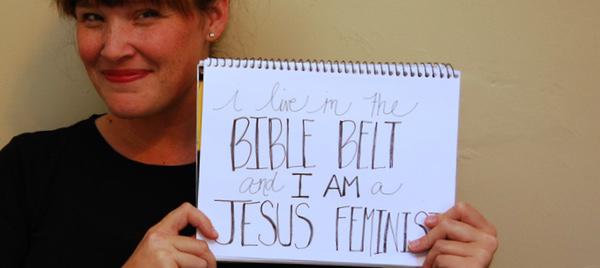 I live in the
BIBLE BELT
and I AM a
JESUS FEMINIST